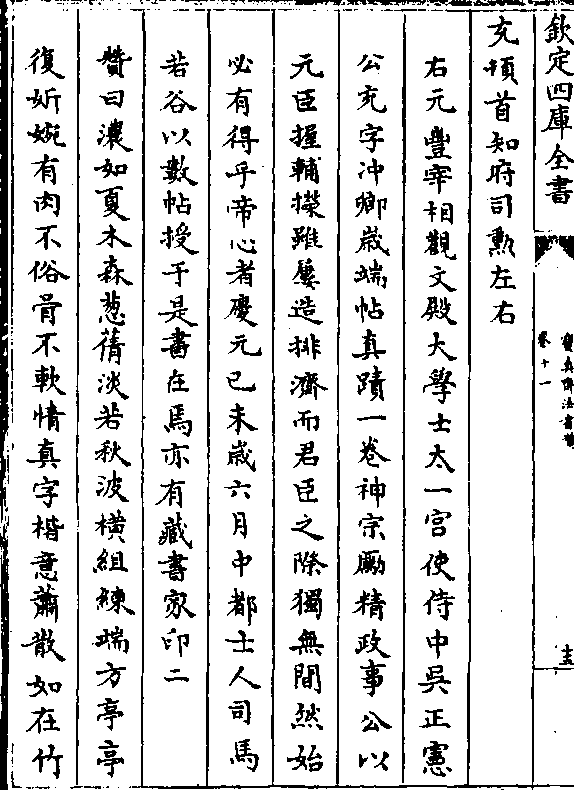 欽定四庫全書
寶真齋法書贊
卷十一
十五
充頓首知府司勲左右
右元豐宰相觀文殿大學士太一宫使侍中吳正憲
公充字冲卿嵗端帖真蹟一卷神宗勵精政事公以
元臣握輔揆雖屢造排濟而君臣之際獨無間然始
必有得乎帝心者慶元已未嵗六月中都士人司馬
若谷以數帖授于是書在焉亦有藏書家印二
贊曰濃如夏木森葱蒨淡若秋波横組練端方亭亭
復妡婉有肉不俗骨不軟情真字楷意蕭散如在竹